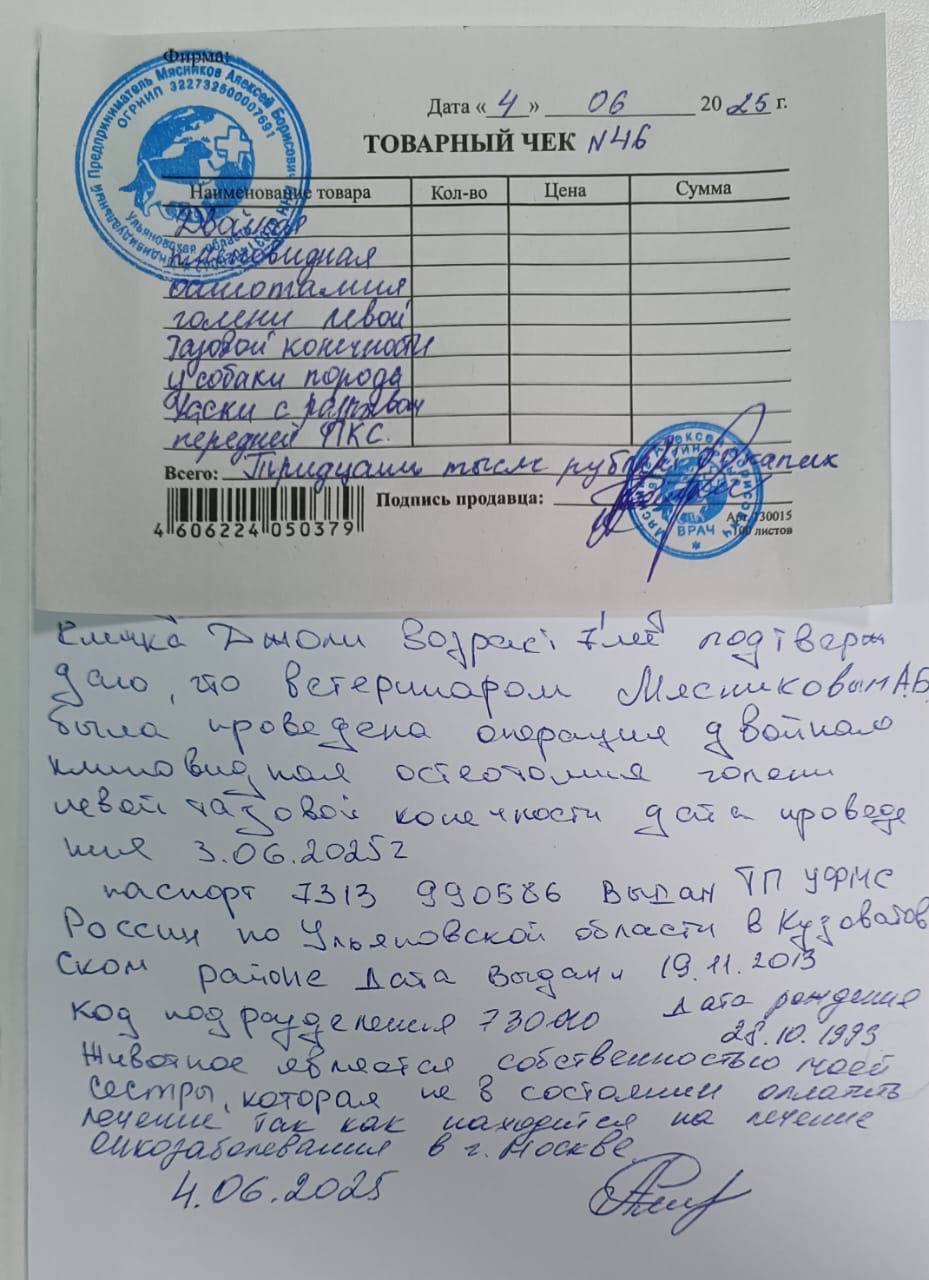 Фирма:
Индивидуальный Предприниматель Мясников Алексей Борисович
ОГРНИП 322732500007691
Ульяновская область
Дата «4» 06 2025 г.
ТОВАРНЫЙ ЧЕК N46
Наименование товара Кол-во Цена Сумма
Двойная
клиновидная
остотамия
голени левой
тазовой конечности
у собаки порода
Хаски с разрывом
передней ПКС.
Всего: Тридцать тысяч рублей 00 капеек
Подпись продавца:
ВРАЧ
Арт. 730015
100 листов
4 606224 050379
кличка Джоли Возраст 7 лет подтверж
даю, что ветеринаром Мясниковым А.Б.
была проведена операция двойная
клиновидная остеотомия голени
левой тазовой конечности дата проведе
ния 3.06.2025г
паспорт 7313 990586 Выдан ТП УФМС
России по Ульяновской области в Кузоватов
ском районе Дата Выдачи 19.11.2013
Код подразделения дата рождения
28.10.1993
Животное является собственностью моей
сестры, которая не в состоянии оплатить
лечение так как находится на лечение
онкозаболевания в г. Москве.
4.06.2025